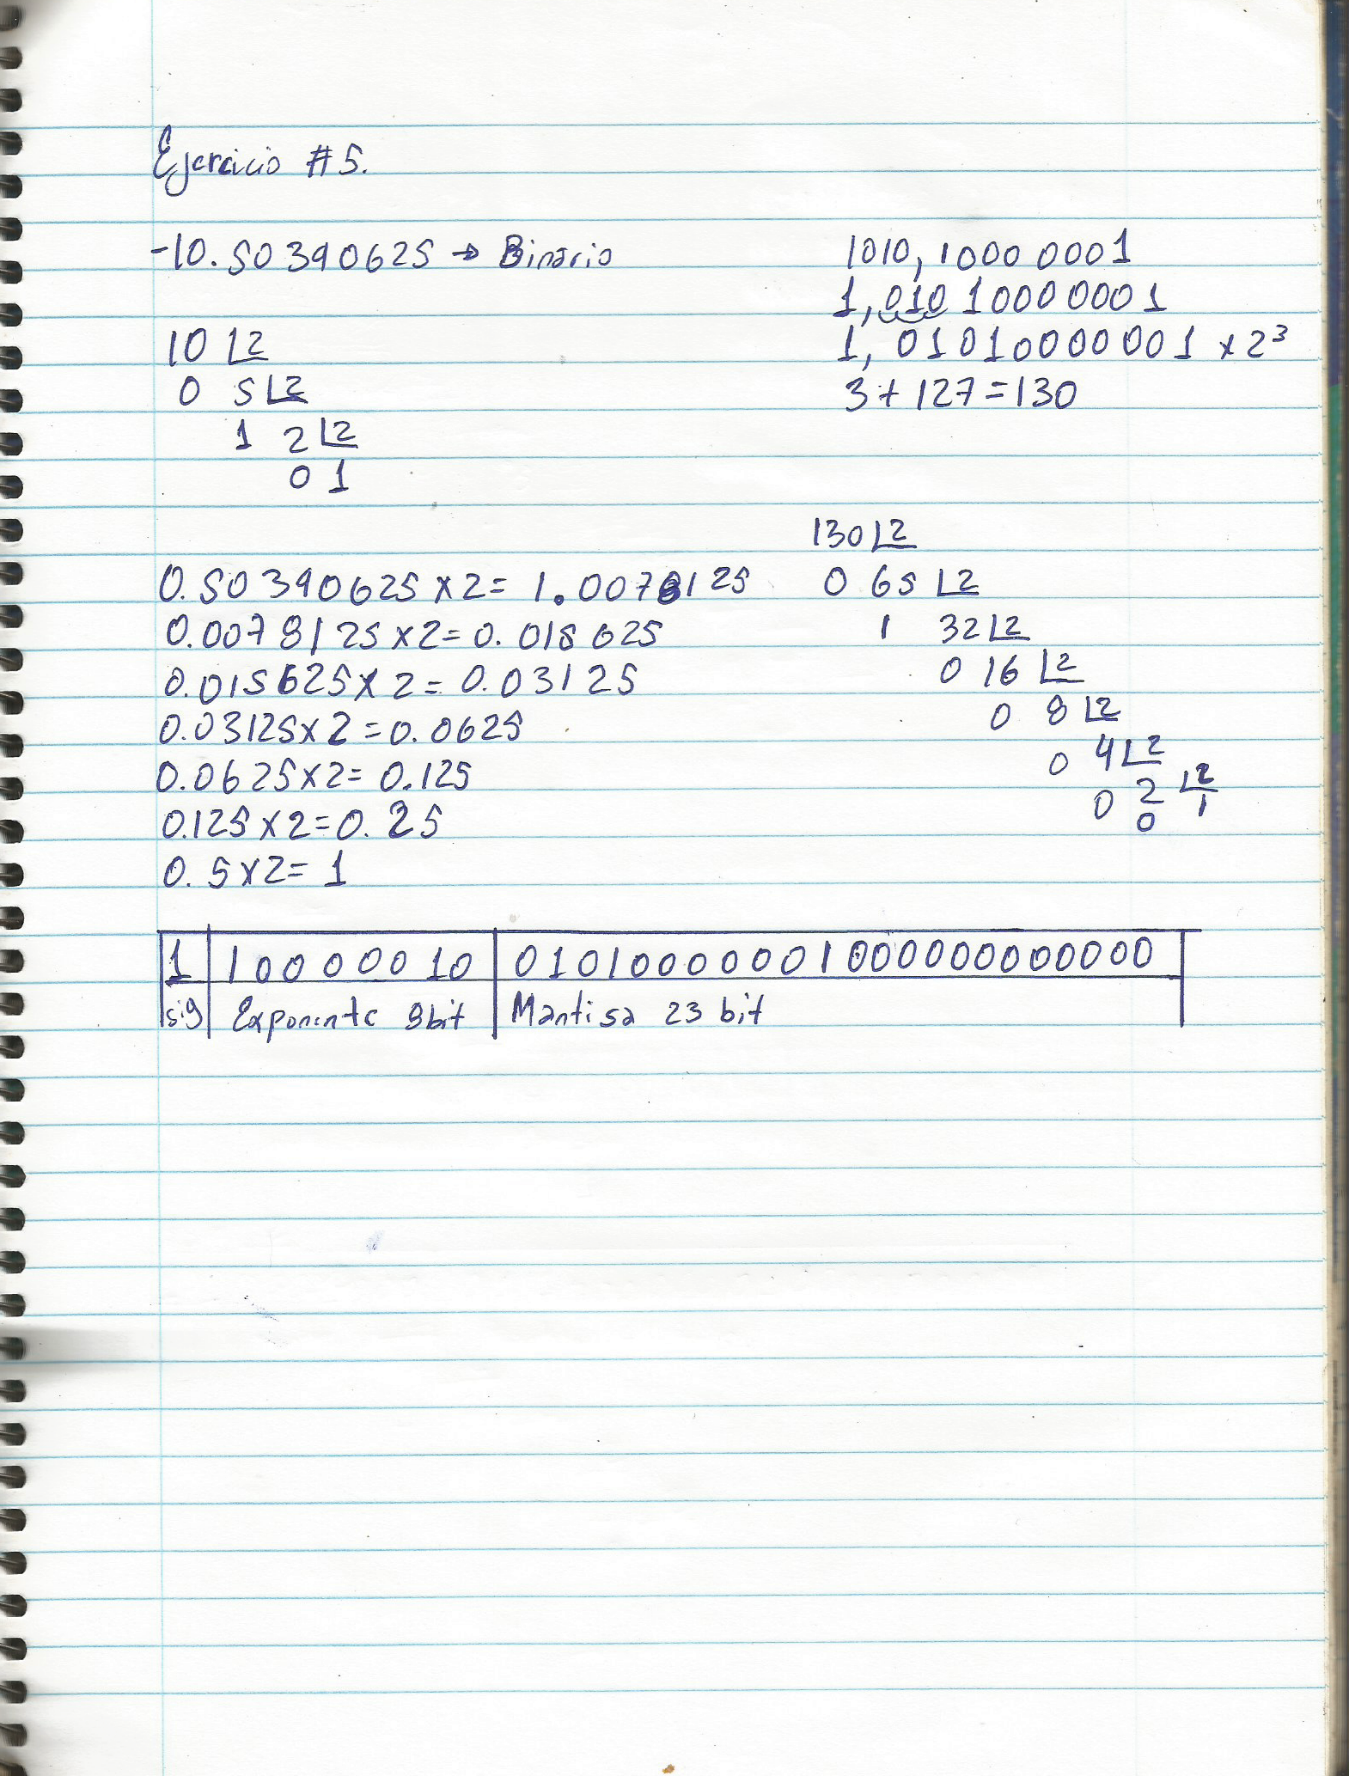 Ejercicio #5.
-10.50390625 → Binario
10 L2
0 5 L2
1 2 L2
0 1
0.50390625 x 2 = 1.0078125
0.0078125 x 2 = 0.015625
0.015625 x 2 = 0.03125
0.03125 x 2 = 0.0625
0.0625 x 2 = 0.125
0.125 x 2 = 0.25
0.5 x 2 = 1
1010, 1000 0001
1, 010 1000 0001
1, 01010000001 x 2³
3 + 127 = 130
130 L2
0 65 L2
1 32 L2
0 16 L2
0 8 L2
0 4 L2
0 2 L2
0 1
1 | 10000010 | 01010000001000000000000
sig | Exponente 8bit | Mantisa 23 bit